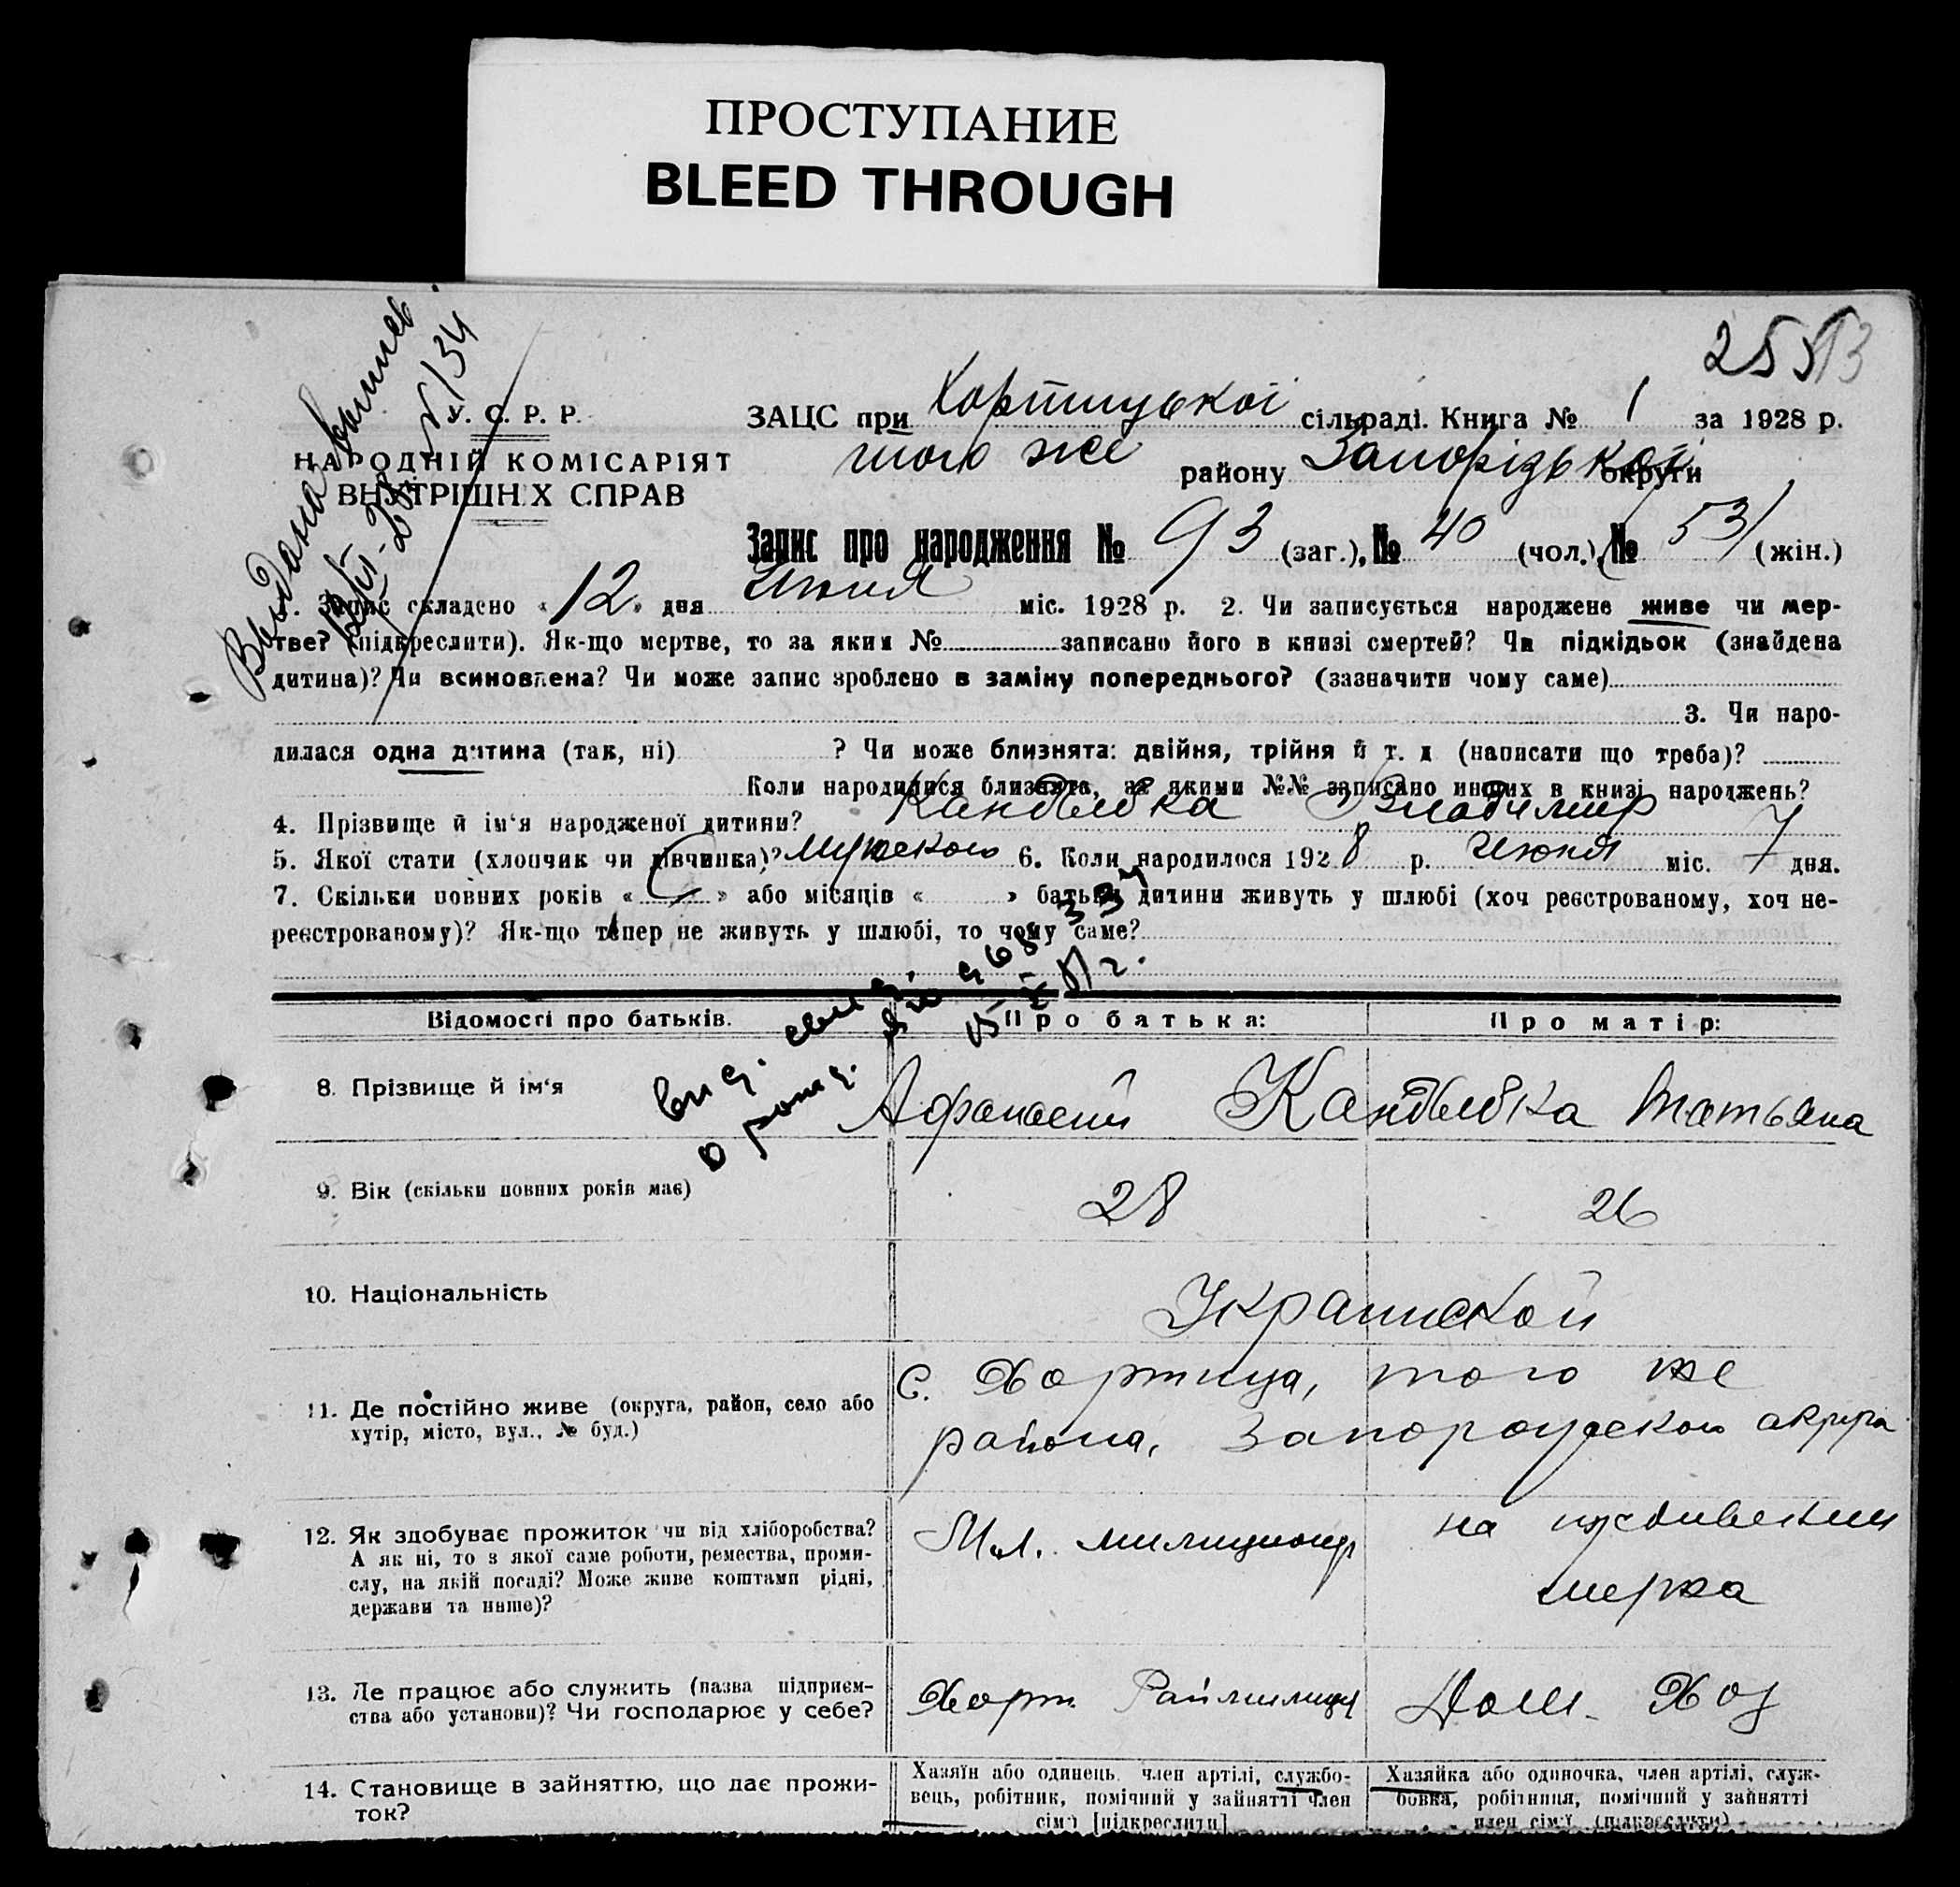 ПРОСТУПАНИЕ
BLEED THROUGH
У. С. Р. Р.
НАРОДНІЙ КОМІСАРІЯТ
ВНУТРІШН Х СПРАВ
ЗАЦС при Хортицької сільраді. Книга № 1 за 1928 р.
того же району Запорізької округи
Запис про народження № 93 (заг.), № 40 (чол.), № 53 (жін.)
1. Запис складено « 12 » дня Июня міс. 1928 р. 2. Чи записується народжене живе чи мер-
тве? (підкреслити). Як-що мертве, то за яким № записано його в книзі смертей? Чи підкідьок (знайдена
дитина)? Чи всиновлена? Чи може запис зроблено в заміну попереднього? (зазначити чому саме)
3. Чи наро-
дилася одна дитина (так, ні) ? Чи може близнята: двійня, трійня й т. д (написати що треба)?
Коли народилися близнята, за якими №№ записано инших в книзі народжень?
4. Прізвище й ім‘я народженої дитини? Кандыбка Владимир
5. Якої стати (хлопчик чи дівчинка)? мужского 6. Коли народилося 1928 р. Июня міс. 7 дня.
7. Скільки повних років « » або місяців « » батьки дитини живуть у шлюбі (хоч реєстрованому, хоч не-
реєстрованому)? Як-що тепер не живуть у шлюбі, то чому саме?
Відомості про батьків. Про батька: Про матір:
8. Прізвище й ім‘я Афанасий Кандыбка Татьяна
9. Вік (скільки повних років має) 28 26
10. Національність Украинской
11. Де постійно живе (округа, район, село або
хутір, місто, вул., № буд.)
с. Хортица, того же
района, Запорожского округа
12. Як здобуває прожиток чи від хліборобства?
А як ні, то з якої саме роботи, ремества, проми-
слу, на якій посаді? Може живе коштами рідні,
держави та инше)?
Мл. милиционер
на иждивении
мужа
13. Де працює або служить (назва підприєм-
ства або установи)? Чи господарює у себе?
Хорт. Раймилиц
Дом. Хоз
14. Становище в зайняттю, що дає прожи-
ток?
Хазяїн або одинець, член артілі, службо-
вець, робітник, помічний у зайнятті член
сім‘ї [підкреслити]
Хазяйка або одиночка, член артілі, служ-
бовка, робітниця, помічний у зайнятті
член сім‘ї (підкреслити)